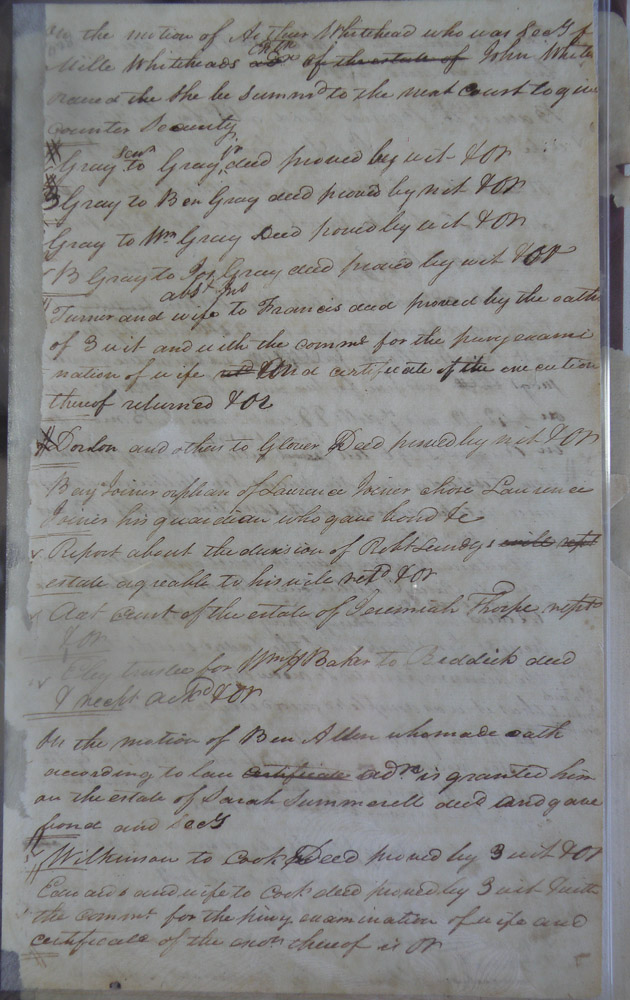 On the motion of Arthur Whitehead who was Secy of
Mille Whiteheads adx Extx of the estate of John White
ordered the she be summd to the next court to give
Counter Security
Gray senr to Gray jr deed proved by wit & OR
3 Gray to Ben Gray deed proved by wit & OR
Gray to Wm Gray Deed proved by wit & OR
B Gray to Jos Gray deed proved by wit & OR
Turner and wife to Francis deed proved by the oath
of 3 wit and with the commn for the privy exami
nation of wife and a certificate of the execution
thereof returned & OR
and others to Glover Deed proved by wit & OR
Joiner orphan of Laurence Joiner chose Laurence
Joiner his guardian who gave bond &c
Report about the division of Robt
estate agreable to his will retd & OR
of the estate of Jeremiah Thorpe
& OR
trustee for Wm H Baker to Reddick deed
& recpt ackd & OR
On the motion of Ben Allen who made oath
according to law certificate adn is granted him
on the estate of Sarah Summerell decd and gave
bond and Secy
Wilkinson to Cook Deed proved by 3 wit & OR
Edwards and wife to Cook deed proved by 3 wit & with
the commn for the privy examination of wife and
certificate of the exon thereof is OR